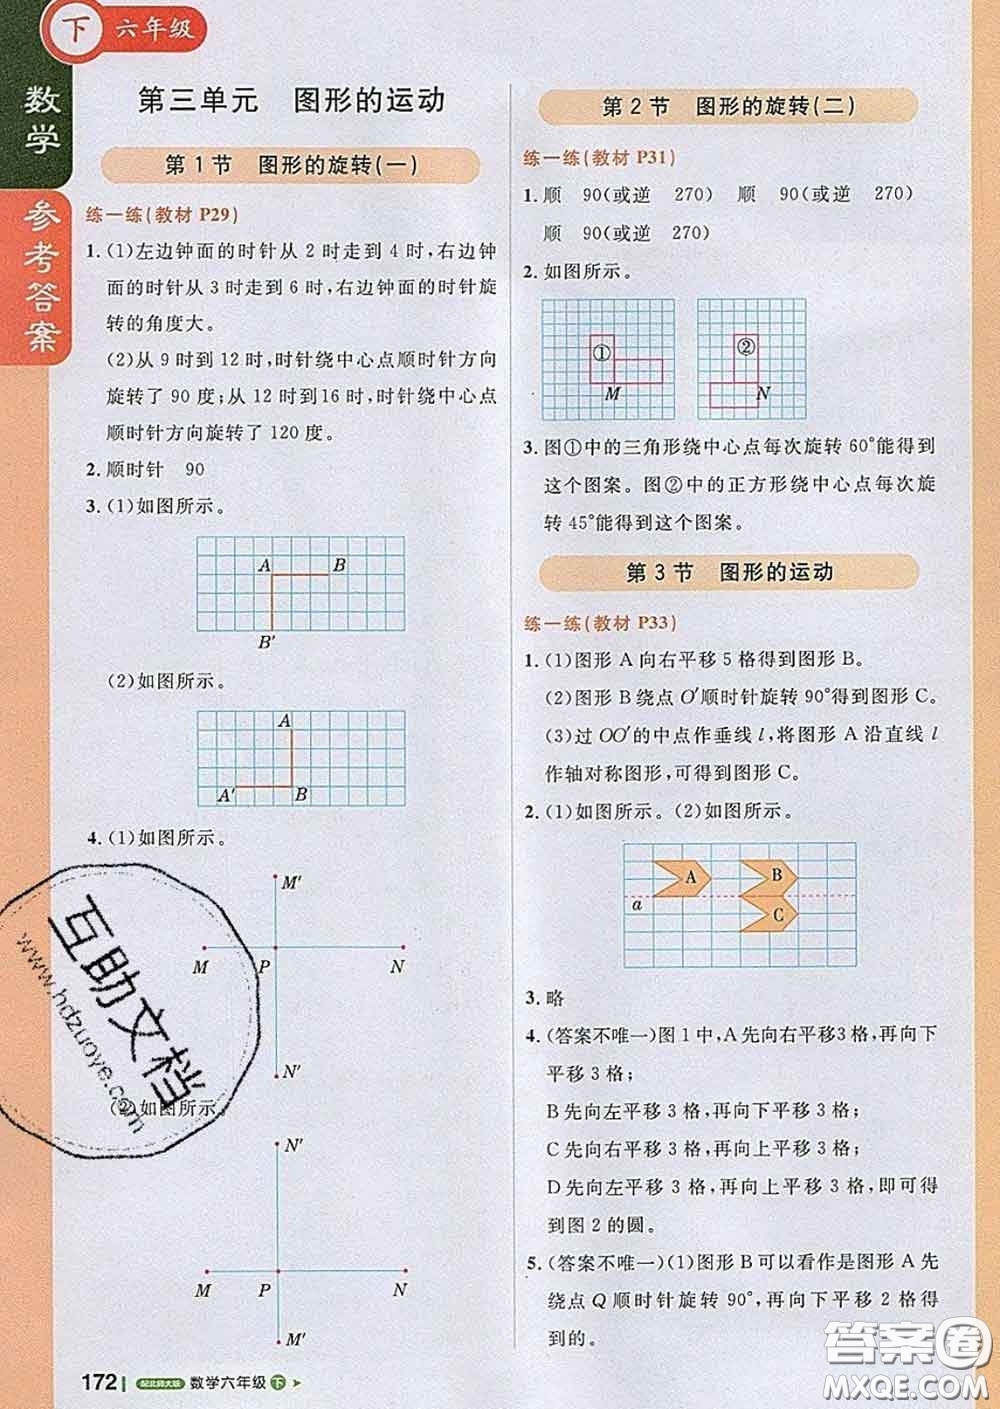 下 六年级
数学
参考答案
第三单元 图形的运动
第1节 图形的旋转(一)
练一练(教材 P29)
1. (1)左边钟面的时针从 2 时走到 4 时,右边钟
面的时针从 3 时走到 6 时,右边钟面的时针旋
转的角度大。
(2)从 9 时到 12 时,时针绕中心点顺时针方向
旋转了 90 度;从 12 时到16 时,时针绕中心点
顺时针方向旋转了 120 度。
2. 顺时针 90
3. (1)如图所示。
A B
B′
(2)如图所示。
A
A′ B
4. (1)如图所示。
M′
M P N
N′
(2)如图所示。
N′
M P N
M′
172 配北师大版 数学六年级 下
第2节 图形的旋转(二)
练一练(教材 P31)
1. 顺 90(或逆 270) 顺 90(或逆 270)
顺 90(或逆 270)
2. 如图所示。
① ②
M N
3. 图①中的三角形绕中心点每次旋转 60°能得到
这个图案。图②中的正方形绕中心点每次旋
转 45°能得到这个图案。
第3节 图形的运动
练一练(教材 P33)
1. (1)图形 A 向右平移 5 格得到图形 B。
(2)图形 B 绕点 O′顺时针旋转 90°得到图形 C。
(3)过 OO′的中点作垂线 l,将图形 A 沿直线 l
作轴对称图形,可得到图形 C。
2. (1)如图所示。 (2)如图所示。
A B
a C
3. 略
4. (答案不唯一)图 1 中,A 先向右平移3 格,再向下
平移 3 格;
B 先向左平移 3 格,再向下平移 3 格;
C 先向右平移 3 格,再向上平移 3 格;
D 先向左平移 3 格,再向上平移 3 格,即可得
到图 2 的圆。
5. (答案不唯一)(1)图形 B 可以看作是图形 A 先
绕点 Q 顺时针旋转 90°,再向下平移 2 格得
到的。
互助文档
www.hdzuoye.com
答案圈
MXQE.COM